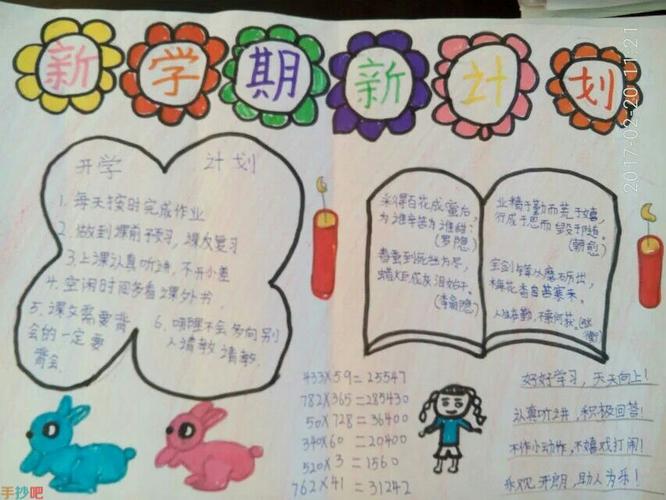 新学期新计划
2017-02-20 11:21
开学 计划
1. 每天按时完成作业
2. 做到课前予习，课次复习
3. 上课认真听讲，不开小差
4. 空闲时间多看课外书，
5. 课文需要背
会的一定要
背会.
6. 有课不会多向别
人请教 请教.
采得百花成蜜后，
为谁辛苦为谁甜：
(罗隐)
春蚕到死丝方尽，
蜡炬成灰泪始干。
(李商隐)
业精于勤而荒于嬉，
行成于思而毁于随。
宝剑锋从磨砺出，
梅花香自苦寒来。
人生在勤，不索何获。
433×59=25547
782×365=285430
50×728=36400
340×60=20400
520×3=1560
762×41=31242
好好学习，天天向上！
认真听讲，积极回答！
不作小动作，不嬉戏打闹！
乐观开朗，助人为乐！
手抄吧